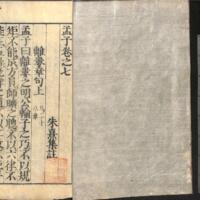 孟子卷之七
朱熹集註
離婁章句上
孟子曰離婁之明公輸子之巧不以規
矩不能成方員師曠之聰不以六律不